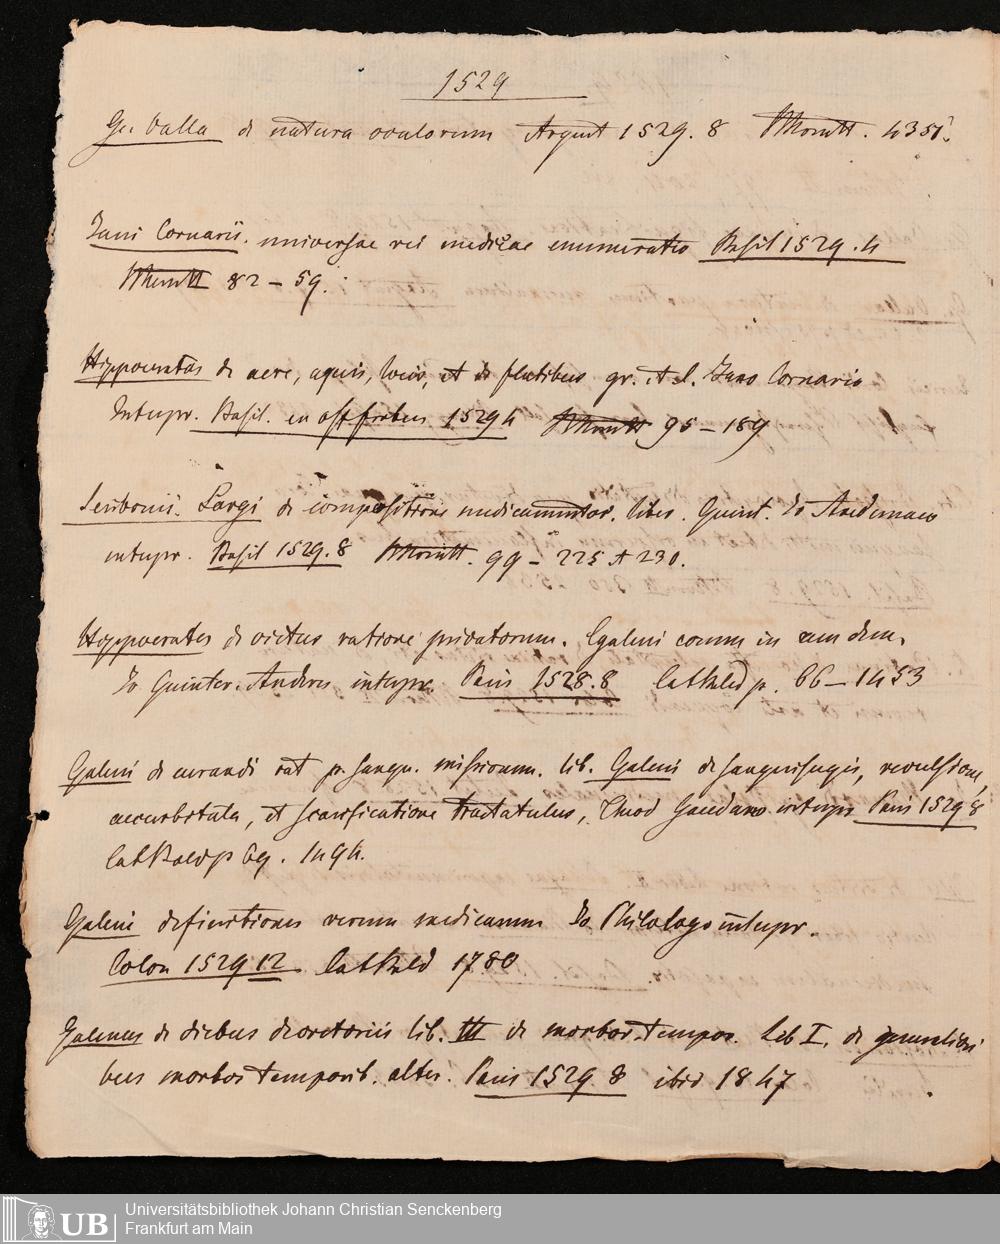 1529
Ge. Valla de natura oculorum Argent 1529. 8
Jani Cornarii. universae rei medicae enumeratio Basil 1529. 4
82 – 59.
Hippocrates de aere, aquis, locis, et de flatibus gr. et l. Jano Cornario
Interpr. Basil. ex off froben 1529 4 95 – 189
Scribonii. Largi de compositione medicamentor. liber. Guint. Jo Andernaco
interpr. Basil 1529. 8 99 – 225 et 230.
Hippocrates de victus ratione privatorum. Galeni comm in eundem.
Jo Guinter. Andern interpr. Paris 1528. 8 66 – 1453
Galeni de curandi rat p. sangu. missionem. lib. Galeni de sanguisugis, revulsione,
cucurbitula, et scarificatione tractatulus, Theod Gaudano interpr Paris 1529 8
69. 1494.
Galeni definitiones rerum medicarum Jo Philologo interpr.
Colon 1529 12 1780
Galenus de diebus decretoriis lib. III de morbor. tempor. Lib I. de generalibus
morbor temporib. alter. Paris 1529 8 ibid 1847
Universitätsbibliothek Johann Christian Senckenberg
UB Frankfurt am Main